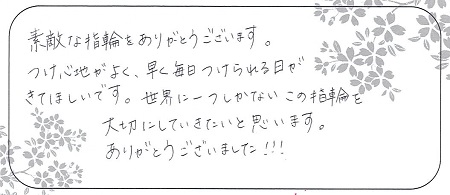 素敵な指輪をありがとうございます。
つけ心地がよく、早く毎日つけられる日が
きてほしいです。世界に一つしかないこの指輪を
大切にしていきたいと思います。
ありがとうございました!!!